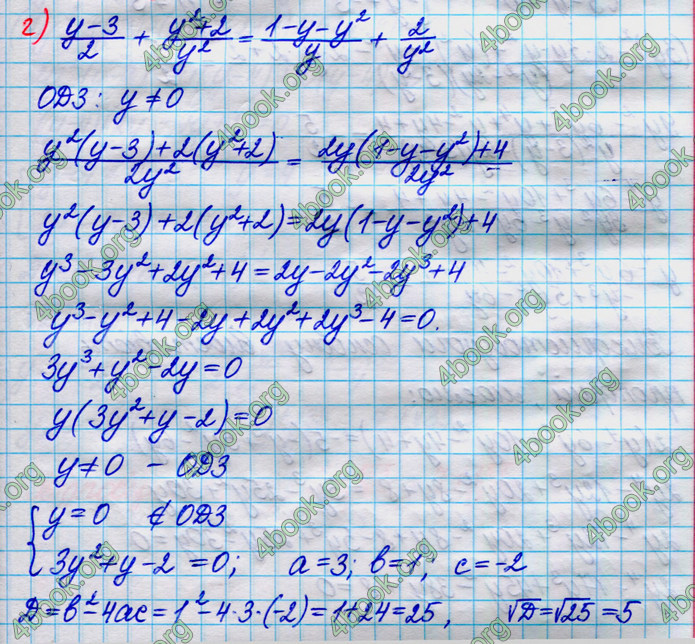 г) (y-3)/2 + (y²+2)/y² = (1-y-y²)/y + 2/y²
ОДЗ: y ≠ 0
(y²(y-3)+2(y²+2))/2y² = (2y(1-y-y²)+4)/2y²
y²(y-3)+2(y²+2)=2y(1-y-y²)+4
y³-3y²+2y²+4=2y-2y²-2y³+4
y³-y²+4-2y+2y²+2y³-4=0.
3y³+y²-2y=0
y(3y²+y-2)=0
y≠0 - ОДЗ
{ y=0 ∉ ОДЗ
3y²+y-2=0; a=3; b=1; c=-2
Д=b²-4ac=1²-4·3·(-2)=1+24=25, √Д=√25=5
4book.org